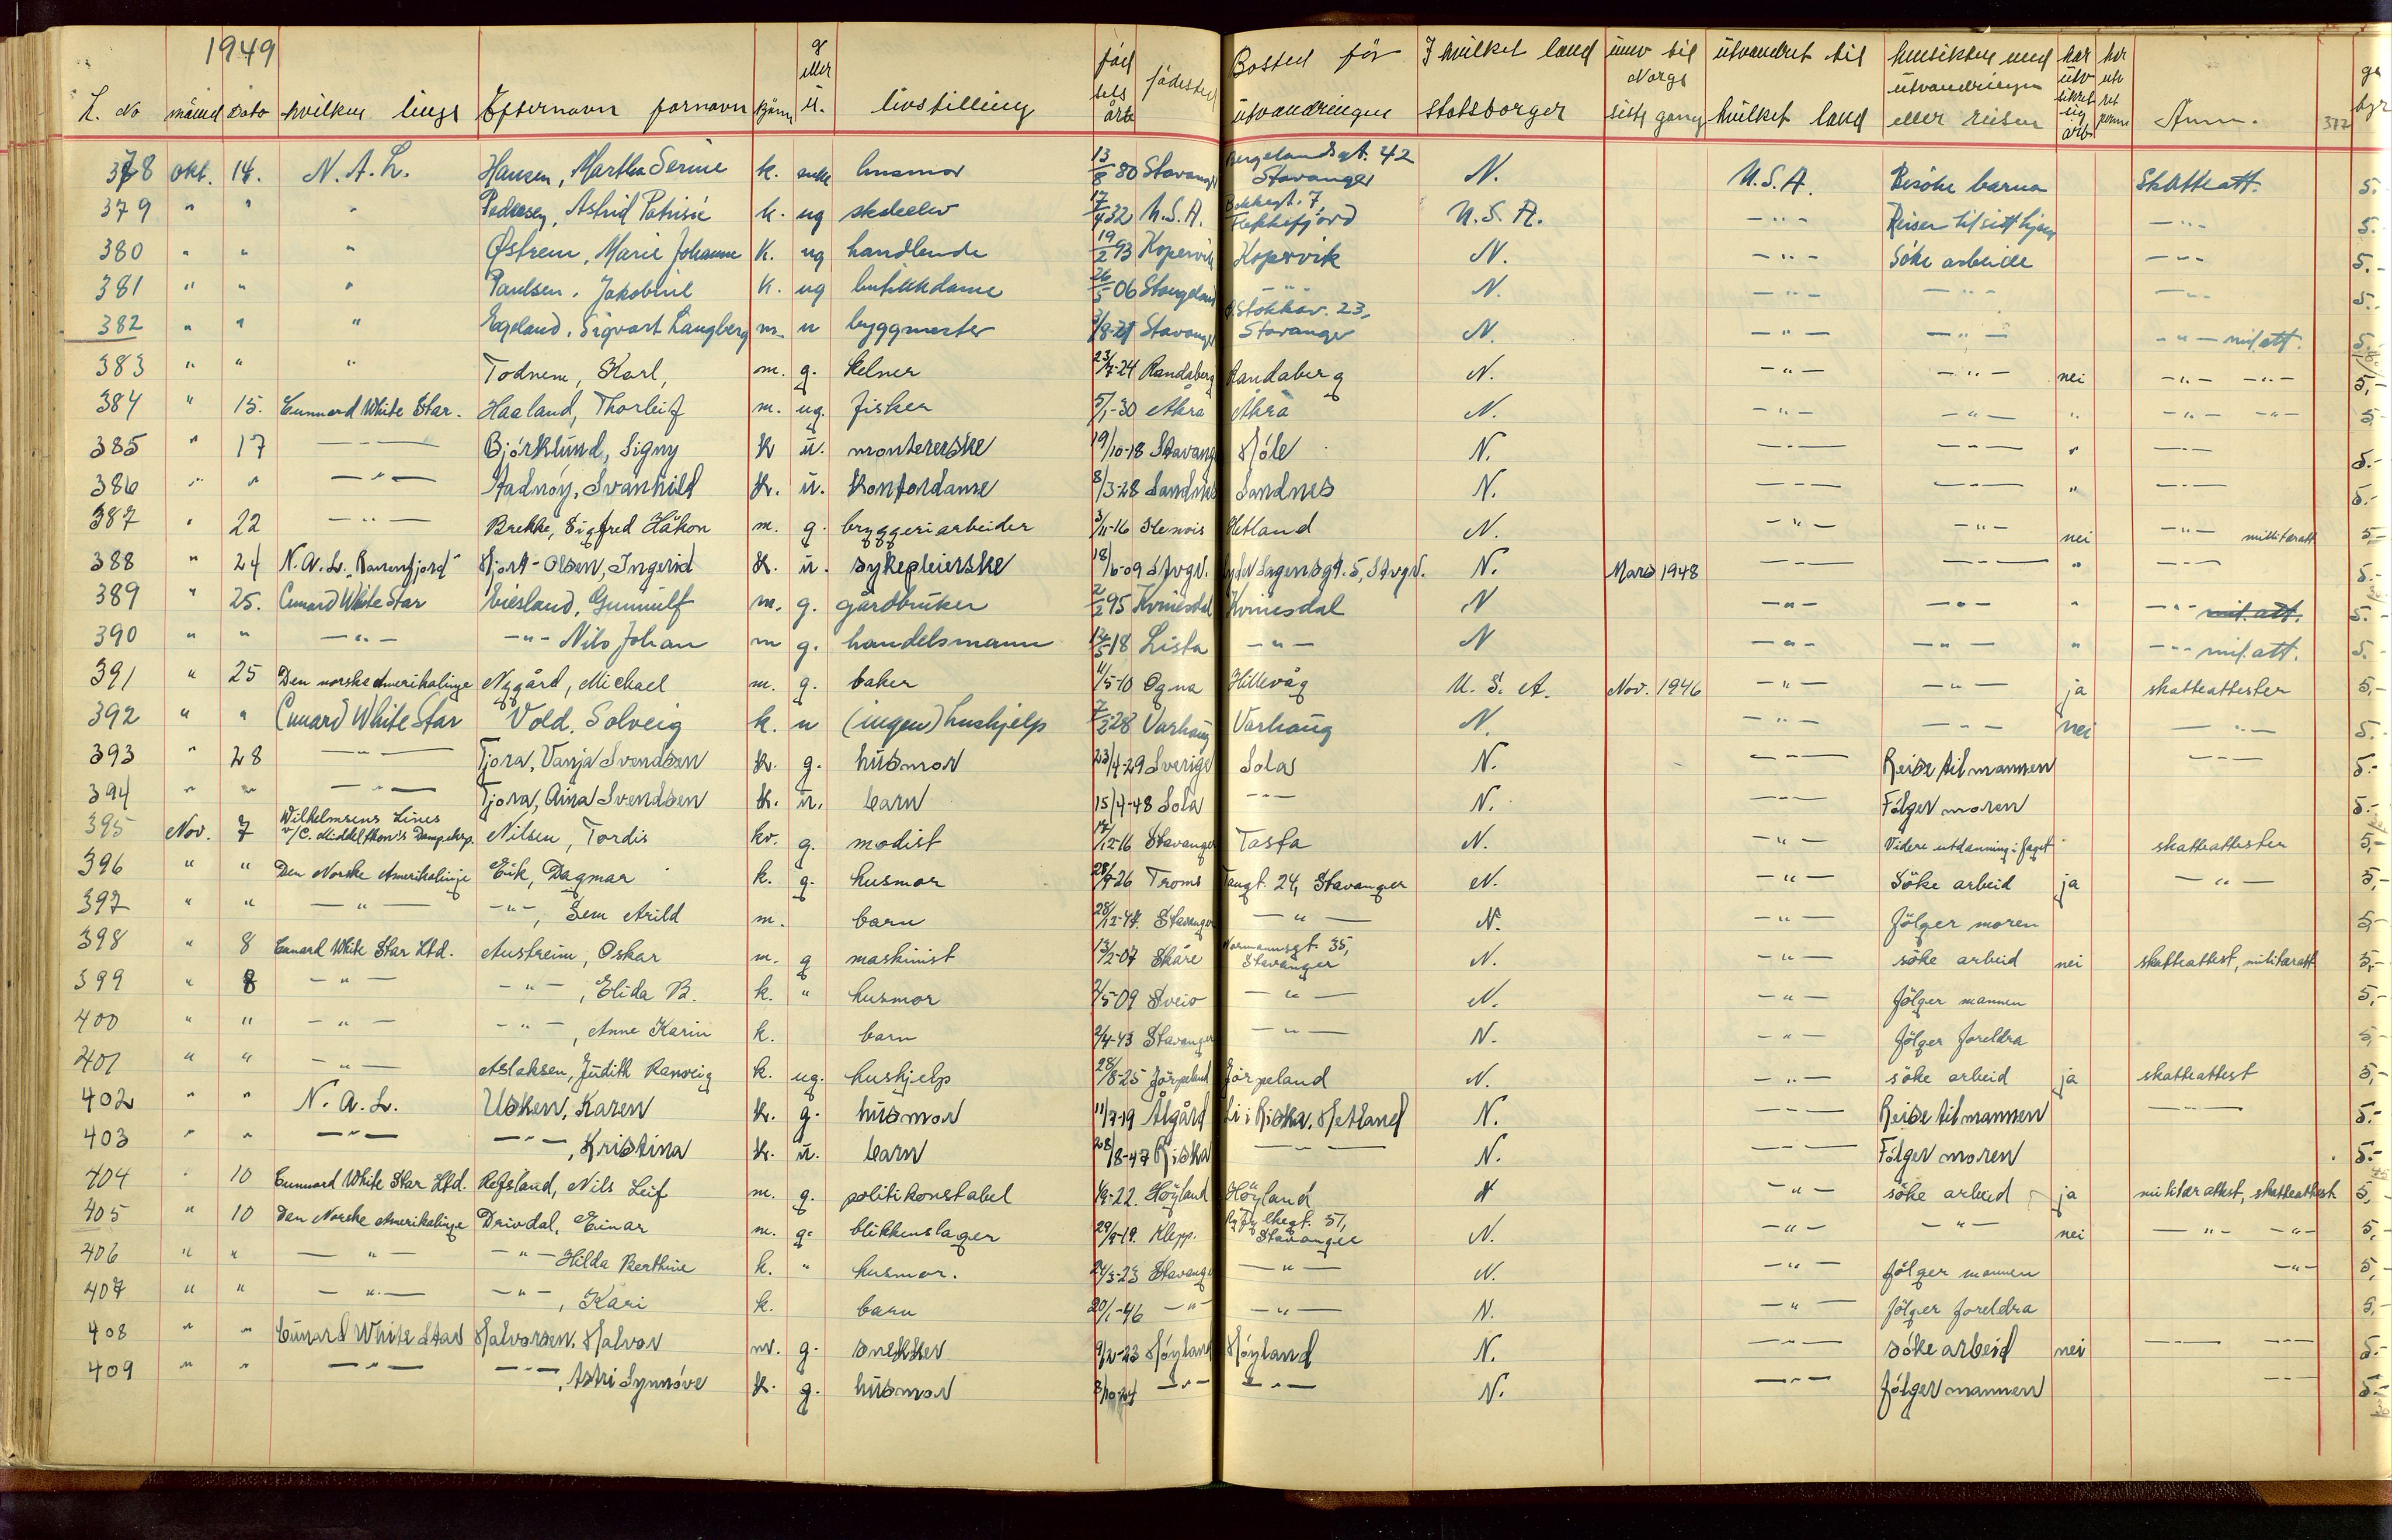 1949
L. No måned Dato hvilken linje Efternavn fornavn kjönn g eller u. livstilling föd sels års födested Bosted för utvandringen I hvilket land statsborger innv til Norge siste gang utvandret til hvilket land hensikten med utvandringen eller reisen har utv sikret sig arb. Anm. 372
378 okt. 14. N.A.L. Hansen, Martha Serine k. enke husmor 13/8 80 Stavanger Bergelandsgt. 42 Stavanger N. U.S.A. Besöke barna Skatteatt. 5.
379 " " " Pedersen, Astrid Patrisie k. ug skoleelev 17/4 32 U.S.A. Bekkegt. 7, Flekkefjord U.S.A. - " - Reiser til sitt hjem - " - 5.
380 " " " Østrem, Marie Johanne K. ug handlende 19/2 93 Kopervik Kopervik N. - " - Söke arbeide - " - 5.-
381 " " " Paulsen, Jakobine K. ug butikkdame 26/5 06 Stangeland - " - N. - " - - " - - " - 5.-
382 " " " Egeland, Sigvart Langberg m. u byggmester 3/8-21 Stavanger Stokkav. 23, Stavanger N. - " - - " - - " - mil.att. 5.-
383 " " " Todnem, Karl, m. g. kelner 23/7-24 Randaberg Randaberg N. - " - - " - nei - " - - " - 5,-
384 " 15. Cunnard White Star. Haaland, Thorleif m. ug. fisker 5/1-30 Åkra Åkra N. - " - - " - " - " - - " - 5
385 " 17 - " - Björklund, Signy K u. montererske 19/10-18 Stavanger Höle N. - " - - " - " - " - 5.-
386 " " - " - Stadnöy, Svanhild K. u. Kontordame 8/3-28 Sandnes Sandnes N. - " - - " - " - " - 5.-
387 " 22 - " - Brekke, Sigfred Håkon m. g. bryggeriarbeider 3/11-16 Hetland N. - " - - " - nei - " - militæratt 5,-
388 " 24 N.A.L. Hjort-Olsen, Ingerid K. u. sykepleierske 18/6-09 Stvgr. Lyder Sagensgt. 5, Stvgr. N. Mars 1948 - " - - " - " - " - 5.-
389 " 25. Cunard White Star Eiesland, Gunnulf m. g. gårdbruker 2/2 95 Kvinesdal Kvinesdal N - " - - " - " - " - mil.att. 5.-
390 " " - " - - " - Nils Johan m g. handelsmann 12/5-18 Lista - " - N - " - - " - " - " - mil.att. 5.
391 " 25 Den norske Amerikalinje Nygård, Michael m. g. baker 11/5-10 Ogna Hillevåg U.S.A. Nov. 1946 - " - - " - ja skatteattester 5,-
392 " " Cunard White Star Vold, Solveig k. u (ingen) hushjelp 7/2 28 Varhaug Varhaug N. - " - - " - nei - " - 5.
393 " 28 - " - Tjora, Vanja Svendsen K. g. husmor 23/4-29 Sverige Sola N. - " - Reise til mannen - " - 5.-
394 " " - " - Tjora, Aina Svendsen K. u. barn 15/4-48 Sola - " - N. - " - Fölger moren 5.-
395 Nov. 7 Wilhelmsens Lines v/C. Middelthon's Dampsksp. Nilsen, Tordis kv. g. modist 17/12-16 Stavanger Tasta N. - " - Videre utdanning i faget skatteattester 5,-
396 " " Den Norske Amerikalinje Eik, Dagmar k. g. husmor 28/9-26 Troms Tangt. 24, Stavanger N. - " - Söke arbeid ja - " - 5,-
397 " " - " - - " -, Sem Arild m. barn 28/12-47. Stavanger - " - N. - " - fölger moren 5-
398 " 8 Cunard White Star Ltd. Austreim, Oskar m. g maskinist 13/2-07 Skåre Normannsgt. 35, Stavanger N. - " - söke arbeid nei skatteattest, militæratt 5,-
399 " 8 - " - - " -, Elida B. k. " husmor 2/5-09 Sveio - " - N. - " - fölger mannen 5,-
400 " " - " - - " -, Anne Karin k. barn 2/4-43 Stavanger - " - N. - " - fölger foreldra 5,-
401 " " - " - Aslaksen, Judith Ranveig k. ug. hushjelp 28/8-25 Jörpeland Jörpeland N. - " - söke arbeid ja skatteattest 5,-
402 " " N.A.L. Usken, Karen K. g. husmor 11/7-19 Ålgård Li i Riska, Hetland N. - " - Reise til mannen - " - 5.-
403 " " - " - - " -, Kristina K. u. barn 28/8-47 Riska - " - N. - " - Fölger moren 5.-
404 " 10 Cunnard White Star Ltd. Refsland, Nils Leif m. g. politikonstabel 1/9-22. Höyland Höyland N - " - söke arbeid ja militærattest, skatteattest 5,
405 " 10 Den Norske Amerikalinje Drivdal, Einar m. g. blikkenslager 29/9-19. Klepp. 51, Stavanger N. - " - - " - nei - " - - " - 5,-
406 " " - " - - " - Hilda Berthine k. " husmor. 24/3-23 Stavanger - " - N. - " - fölger mannen - " - 5,-
407 " " - " - - " -, Kari k. barn 20/1-46 - " - - " - N. - " - fölger foreldra 5,-
408 " " Cunard White Star Halvorsen, Halvor m. g. snekker 9/2-23 Höyland Höyland N. - " - söke arbeid nei - " - - " - 5.-
409 " " - " - - " -, Astri Synnöve K. g. husmor 8/10-24 - " - - " - N. - " - fölger mannen - " - 5.-